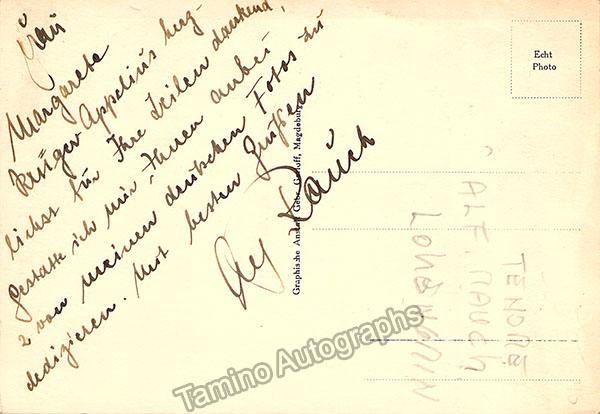 Frau
Margarete
Rüger Appelius herz-
lichst für Ihre Zeilen dankend,
gestatte ich mir, Ihnen anbei
2 von meinen deutschen Fotos zu
dedizieren. Mit besten Grüßen
Rauch
Echt
Photo
Graphische Anstalt Gebr. Garloff, Magdeburg
"ALF. RAUCH
TENORE
LOHENGRIN
Tamino Autographs